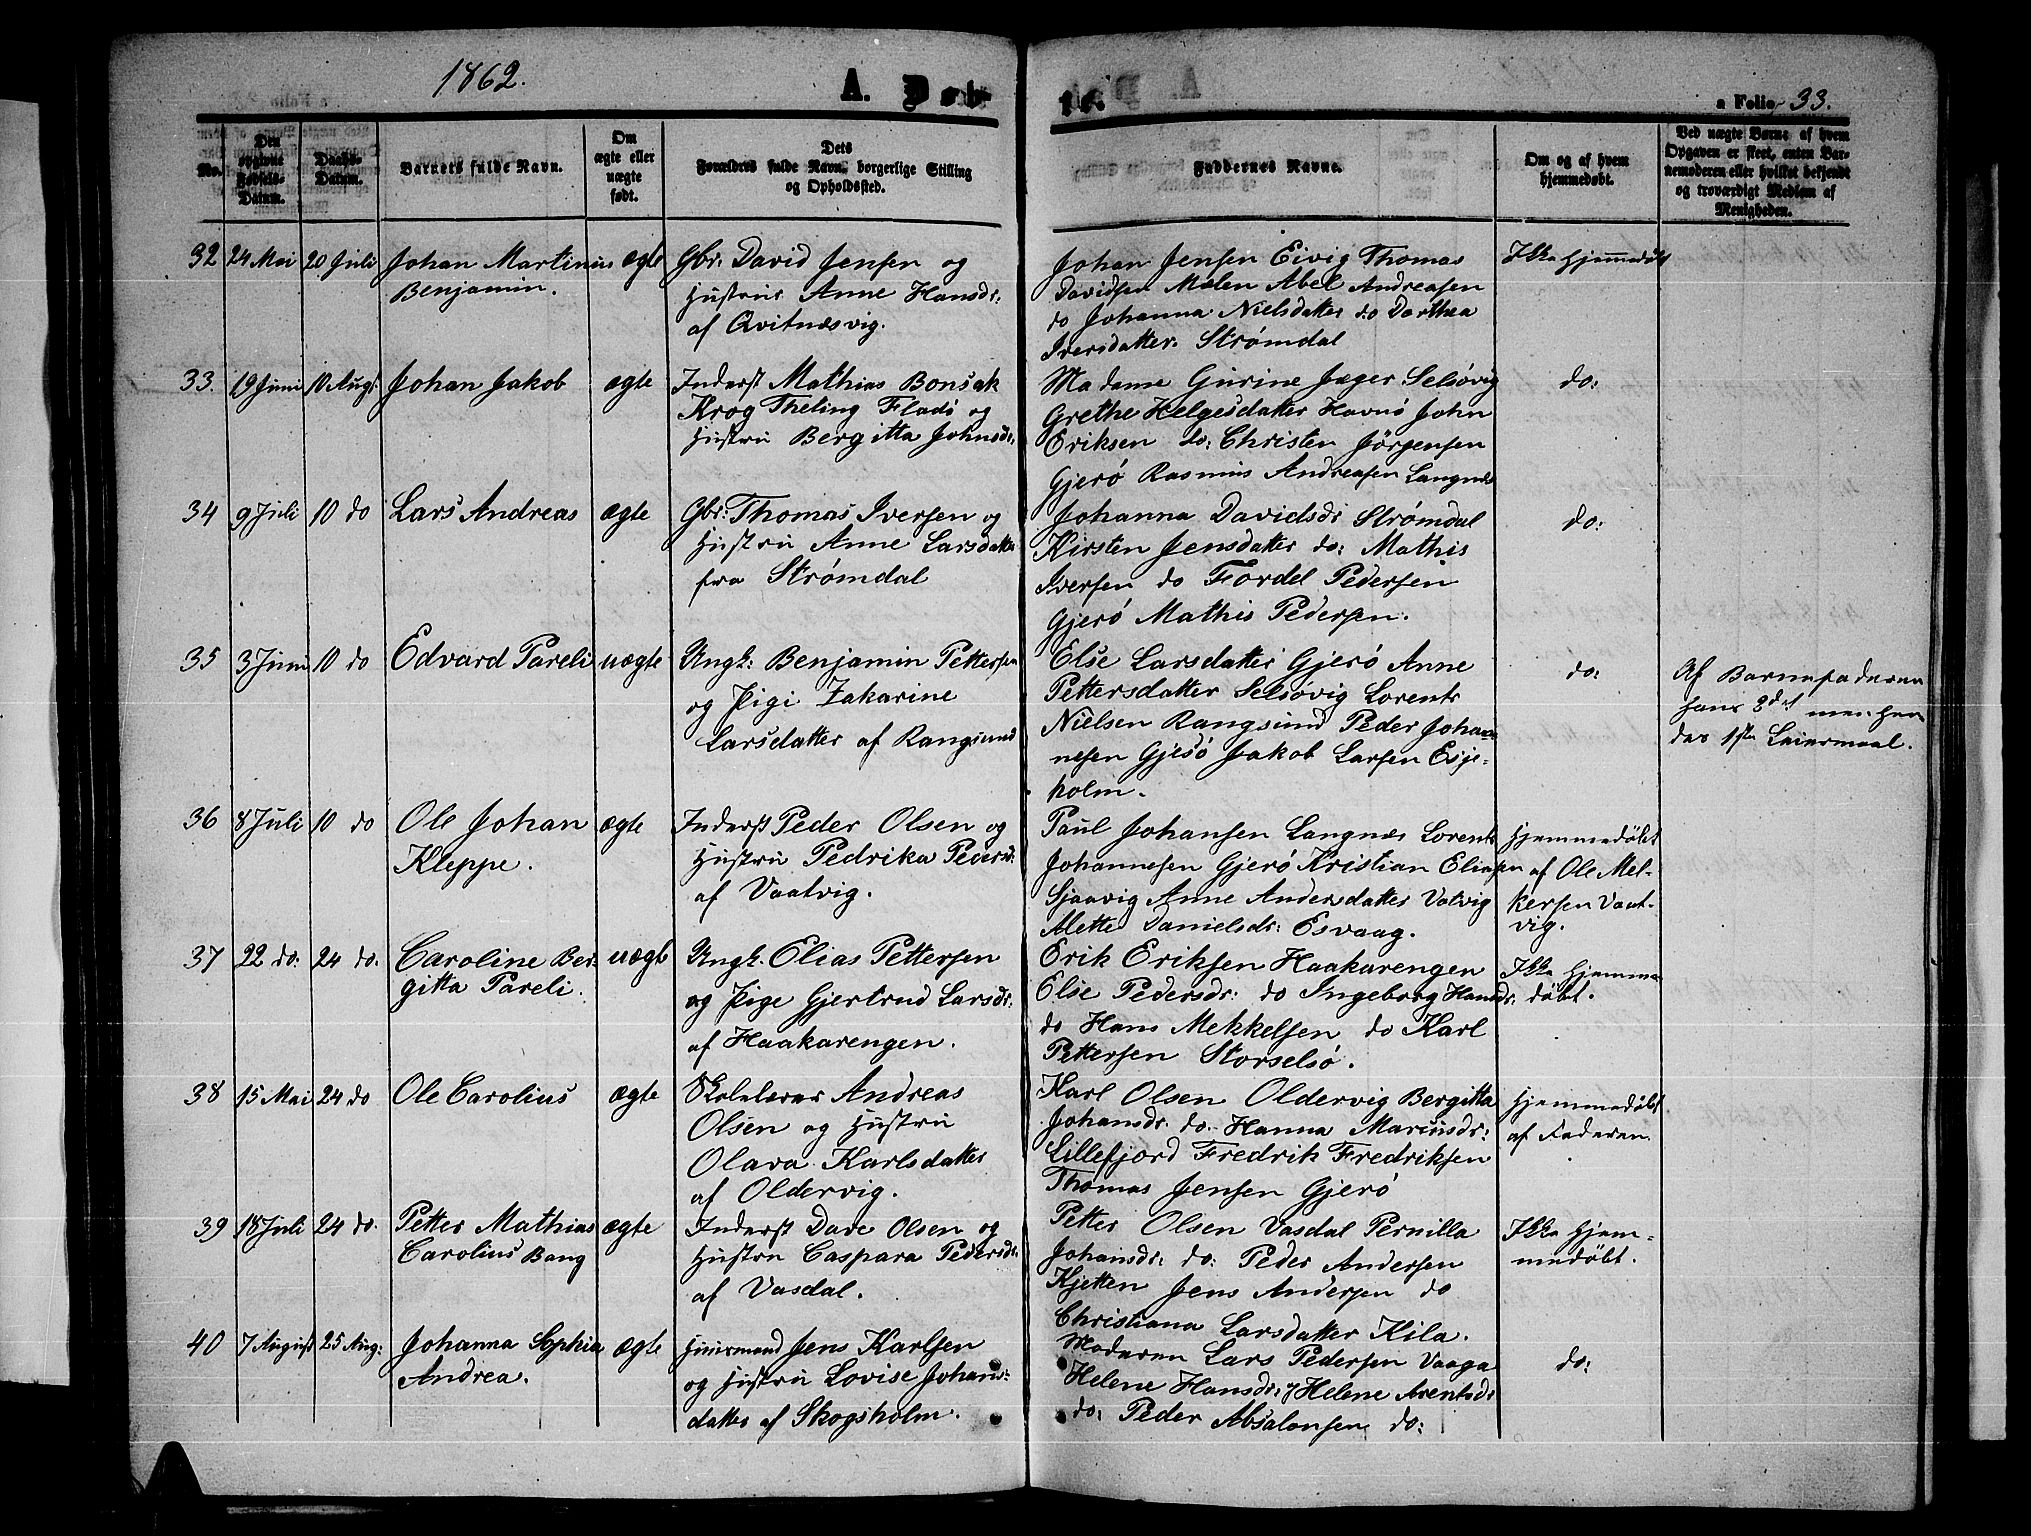 1862.
A. Døb-
te.
a Folio 33.
No.
Den
opgivne
Fødsels-
Datum.
Daabs-
Datum.
Barnets fulde Navn.
Om
ægte eller
uægte
født.
Dets
Forældres fulde Navn, borgerlige Stilling
og Opholdssted.
Faddernes Navne.
Om og af hvem
hjemmedøbt.
Ved uægte Børn: af hvem
Opgaven er skeet, enten Bar-
nemoderen eller hvilket bekjendt
og troværdigt Medlem af
Menigheden.
32 24 Mai 20 Juli Johan Martinus ægte
Benjamin.
Gbr: David Jensen og
Hustrue Anne Hansdr:
af Qvitnæsvig.
Johan Jensen Eivig Thomas
Davidsen Mølen Abel Andreasen
do Johanna Nielsdatter do Dorthea
Iversdatter. Strømdal
Ikke hjemmedøbt
33. 19 Juni 10 Aug: Johan Jakob ægte
Inderst Mathias Bonsak
Krog Theling Fladö og
Hustru Bergitta Johnsdr:
Madame Gurine Jæger Selsövig
Grethe Helgesdatter Havnö John
Eriksen do: Christen Jörgensen
Gjerö Rasmus Andreasen Langnæs
do:
34 9 Juli 10 do Lars Andreas ægte
Gbr: Thomas Iversen og
Hustru Anne Larsdatter
fra Strømdal
Johanna Davidsdr Strømdal
Kirsten Jensdatter do: Mathis
Iversen do Fordel Pedersen
Gjerö Mathis Pedersen.
do:
35 3 Juni 10 do Edvard Pareli uægte
Ungk: Benjamin Pettersen
og Pigi Zakarine
Larsdatter af Rangsund
Else Larsdatter Gjerö Anne
Pettersdatter Selsövig Lorents
Nielsen Rangsund Peder Johan-
nesen Gjesö Jakob Larsen Esje-
holm.
do:
Af Barnefaderen
hans 2det men hen
des 1ste Leiermaal.
36 8 Juli 10 do Ole Johan ægte
Kleppe.
Inderst Peder Olsen og
Hustru Pedrika Pedersdr:
af Vaatvig.
Paul Johansen Langnæs Lorents
Johannesen Gjerö Kristian Eliasen
Sjaavig Anne Andersdatter Vatvig
Mette Danielsdr: Esvaag.
Hjemmedöbt
af Ole Mel-
kersen Vaat-
vig.
37 22 do: 24 do. Caroline Ber- uægte
gitta Pareli.
Ungk. Elias Pettersen
og Pige Gjertrud Larsdr:
af Haakarengen.
Erik Eriksen Haakarengen
Else Pedersdr: do Ingeborg Hansdr:
do Hans Mekkelsen do Karl
Pettersen Storselsö.
Ikke hjemme
döbt.
38 15 Mai 24 do Ole Carolius ægte
Skolelærer Andreas
Olsen og Hustru
Olava Karlsdatter
af Oldervig.
Karl Olsen Oldervig Bergitta
Johansdr: do. Hanna Mariusdr:
Lillefjord Fredrik Fredriksen
Thomas Jensen Gjerö
Hjemmedöbt
af Faderen.
39 18 Juli 24 do. Petter Mathias ægte
Carolius Bang
Inderst Dave Olsen og
Hustru Caspara Pedersdr:
af Vasdal.
Petter Olsen Vasdal Pernilla
Johansdr: do: Peder Andersen
Kjetten Jens Andersen do
Christiana Larsdatter Kila.
Ikke hjem-
medöbt.
40 7 August 25 Aug: Johanna Sophia ægte
Andrea.
Huusmand Jens Karlsen
og Hustru Lovise Johans-
datter af Skogsholm.
Moderen Lars Pedersen Vaaga
Helene Hansdr: Helene Arentsdr
do: Peder Absalonsen do:
do: